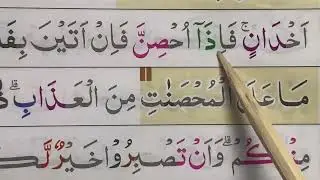 اَخْدَانٍ ۚ فَاِذَاۤ اُحْصِنَّ فَاِنْ اَتَيْنَ
مَا عَلَى الْمُحْصَنٰتِ مِنَ الْعَذَابِ ؕ
مِنْكُمْ ؕ وَاَنْ تَصْبِرُوْا خَيْرٌ لَّكُ